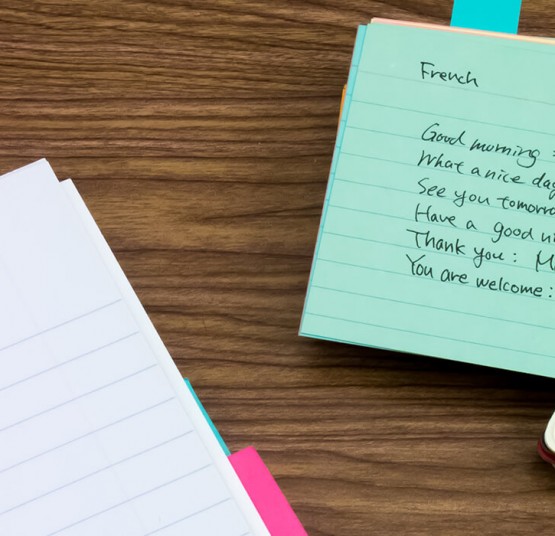 French
Good morning :
What a nice day
See you tomorro
Have a good ni
Thank you : M
You are welcome :